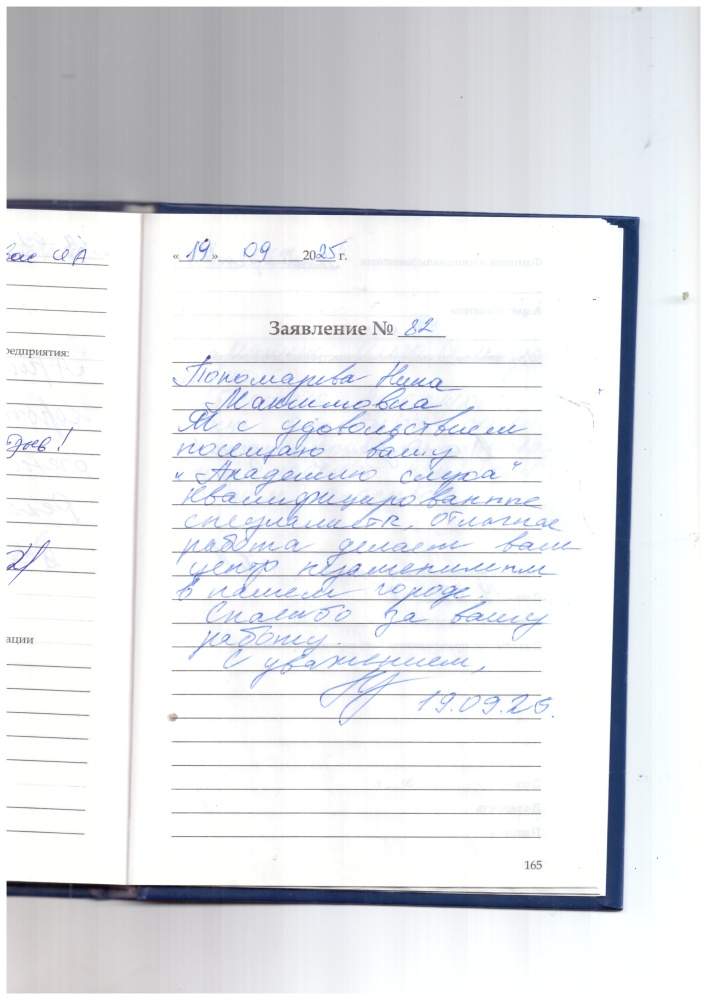 «19» 09 2025 г.
Заявление № 82
Пономарева Нина
Максимовна
Я с удовольствием
посещаю вашу
"Академию слуха"
Квалифицированные
специалисты, отличная
работа делает ваш
центр незаменимым
в нашем городе.
Спасибо за вашу
работу.
С уважением,
19.09.25.
165
редприятия:
ации